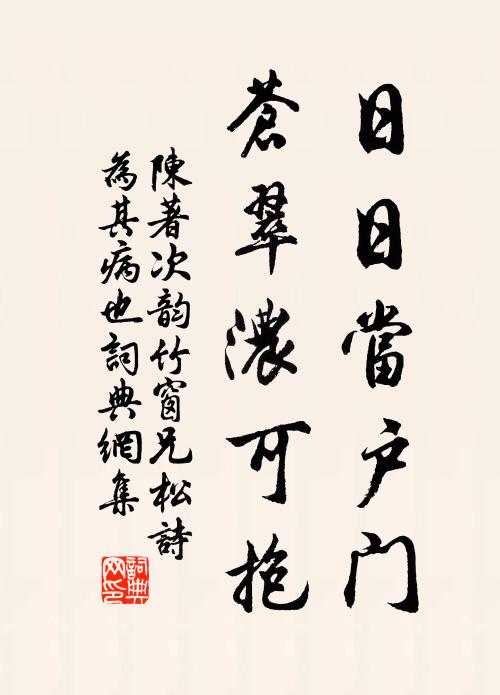 日日當户门
蒼翠濃可抱
陳著次韵竹窗兄松詩
為其病也詞典網集
詞典网印